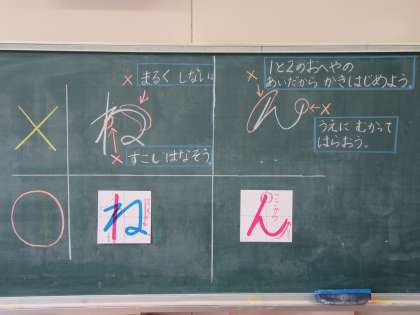 × まるく しない
ね
× すこし はなそう。
× 1と2のおへやの
あいだから かきはじめよう。
ん
×
うえに むかって
はらおう。
×
○
ね
ん